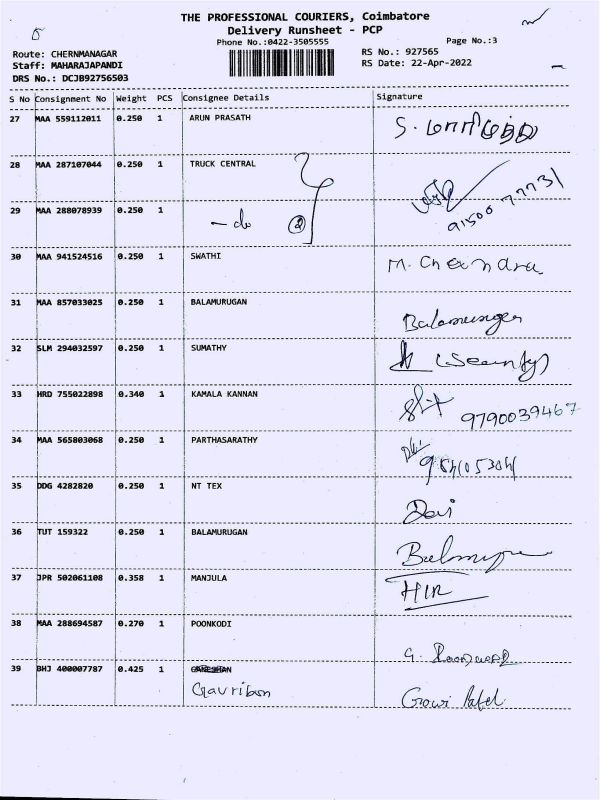 THE PROFESSIONAL COURIERS, Coimbatore
Delivery Runsheet - PCP
Phone No.:0422-3505555
Page No.:3
Route: CHERNMANAGAR
RS No.: 927565
Staff: MAHARAJAPANDI
RS Date: 22-Apr-2022
DRS No.: DCJB92756503
S No Consignment No Weight PCS Consignee Details Signature
27 MAA 559112011 0.250 1 ARUN PRASATH
28 MAA 287107044 0.250 1 TRUCK CENTRAL
91500 77731
29 MAA 288078939 0.250 1 - do 2
30 MAA 941524516 0.250 1 SWATHI M. Chandra
31 MAA 857033025 0.250 1 BALAMURUGAN
Balamurugan
32 SLM 294032597 0.250 1 SUMATHY
(Security)
33 HRD 755022898 0.340 1 KAMALA KANNAN
9790039467
34 MAA 565803068 0.250 1 PARTHASARATHY
35 DDG 4282820 0.250 1 NT TEX
Devi
36 TUT 159322 0.250 1 BALAMURUGAN
37 JPR 502061108 0.358 1 MANJULA
38 MAA 288694587 0.270 1 POONKODI
39 BHJ 400007787 0.425 1
Gauriben Gowri Patel